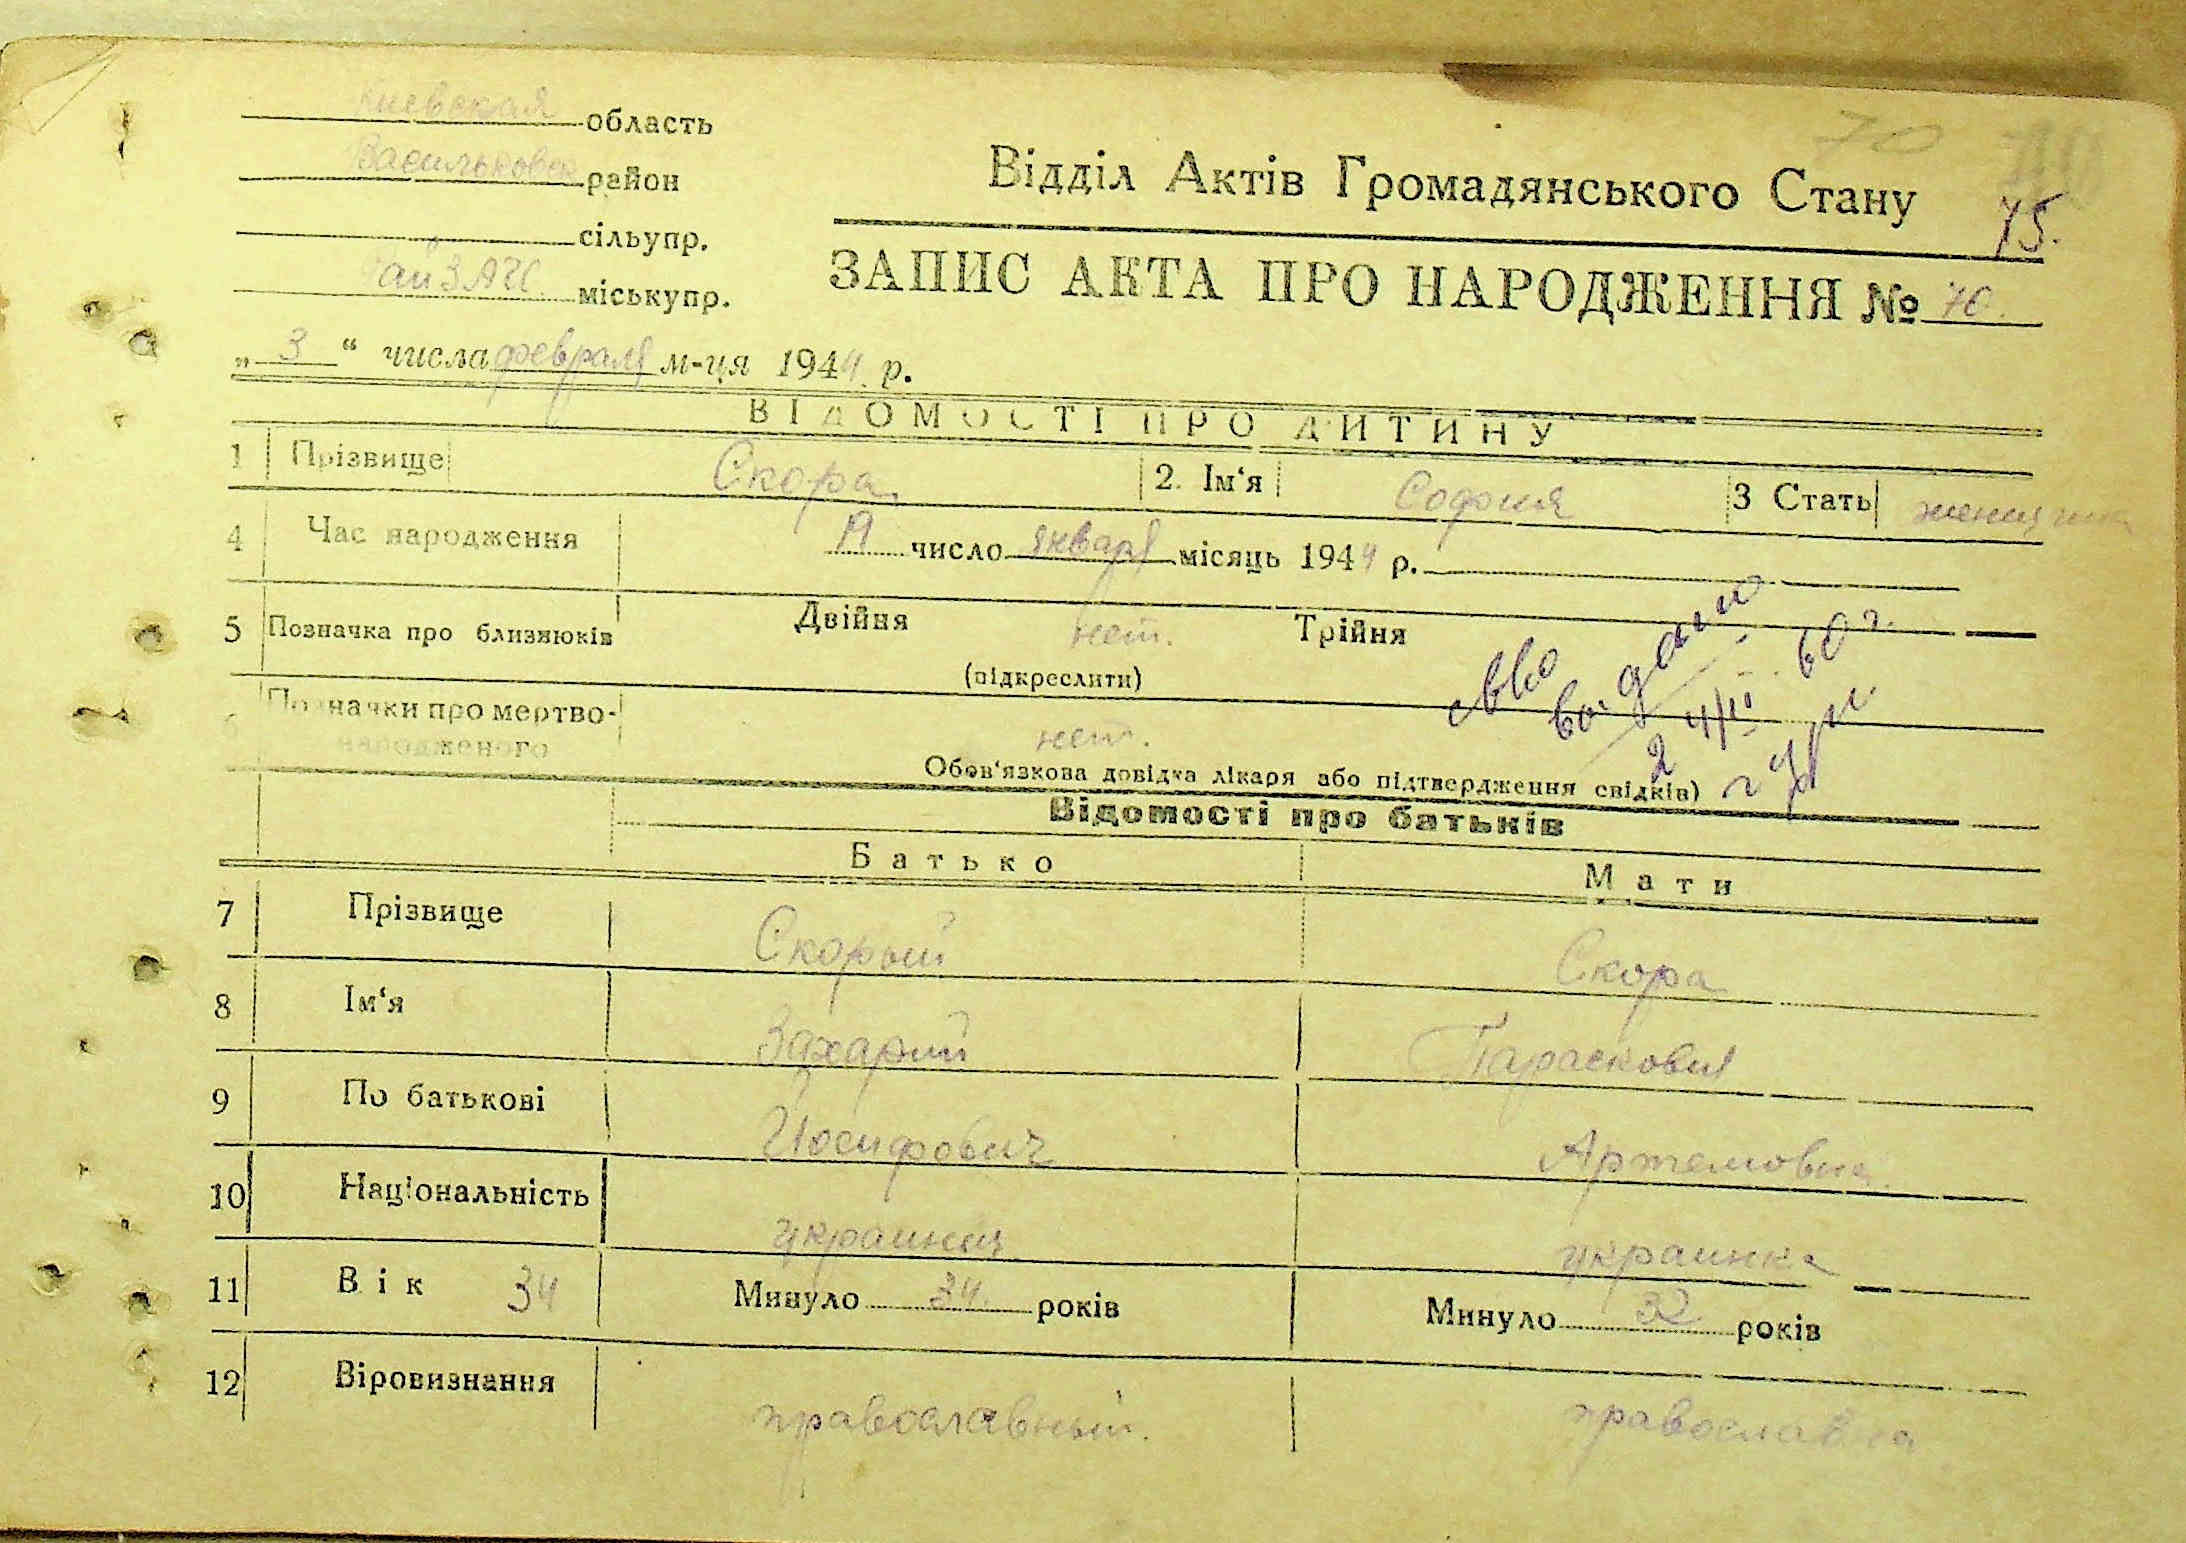 Киевская область
Васильковск район
сільупр.
РайЗАГС міськупр.
70
Відділ Актів Громадянського Стану
75.
ЗАПИС АКТА ПРО НАРОДЖЕННЯ № 70.
„ 3 “ числа февраля м-ця 1944 р.
ВІДОМОСТІ ПРО ДИТИНУ
1 Прізвище Скора 2. Ім‘я София 3 Стать женщина
4 Час народження число января місяць 1944 р.
5 Позначка про близнюків Двійня нет. Трійня
(підкреслити)
6 Позначки про мертво-
народженого нет.
Обов‘язкова довідка лікаря або підтвердження свідків)
60 г.
Відомості про батьків
Батько Мати
7 Прізвище Скорый Скора
8 Ім‘я Захарий Парасковия
9 По батькові Йосифович Артемовна
10 Національність украинец украинка
11 Вік 34 Минуло 34 років Минуло 32 років
12 Віровизнання православный. православна